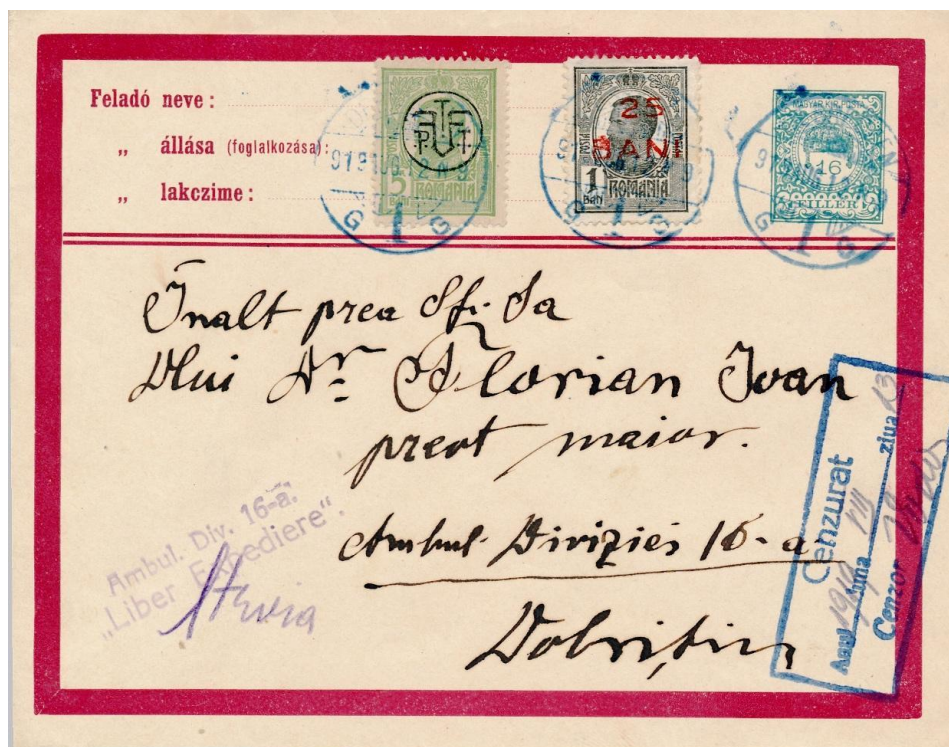 Feladó neve :
„ állása (foglalkozása):
„ lakczime :
PTT
5
ROMANIA
BANI
POSTA
25
BANI
1
BAN
ROMANIA
MAGYAR KIR. POSTA
16
FILLÉR
919 AUG
1
Înalt prea Sf. Sa
Dlui Dr. Florian Ioan
preot maior.
Ambul. Diviziei 16-a
Dobrițin
Ambul. Div. 16-a.
„Liber Expediere".
Cenzurat
Anul 1919 luna VIII ziua 13
Cenzor